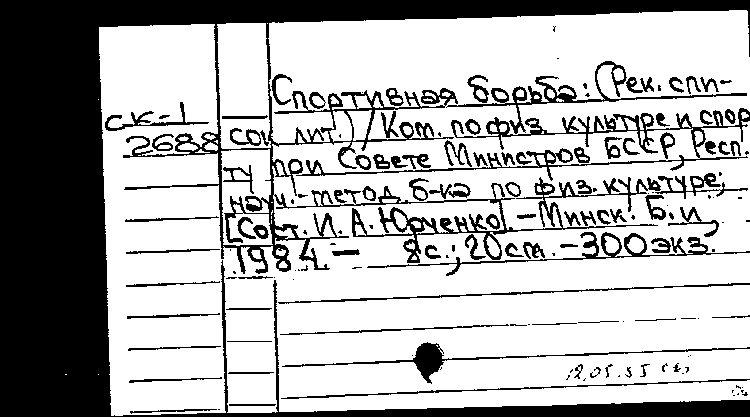 Спортивная борьба: (Рек. спи-
ск-1
2688 сок лит.) / Ком. по физ. культуре и спор
ту при Совете Министров БССР, Респ.
науч.-метод. б-ка по физ. культуре;
[Сост. И. А. Юрченко]. – Минск: Б. и.,
1984. – 8 с.; 20 см. – 300 экз.